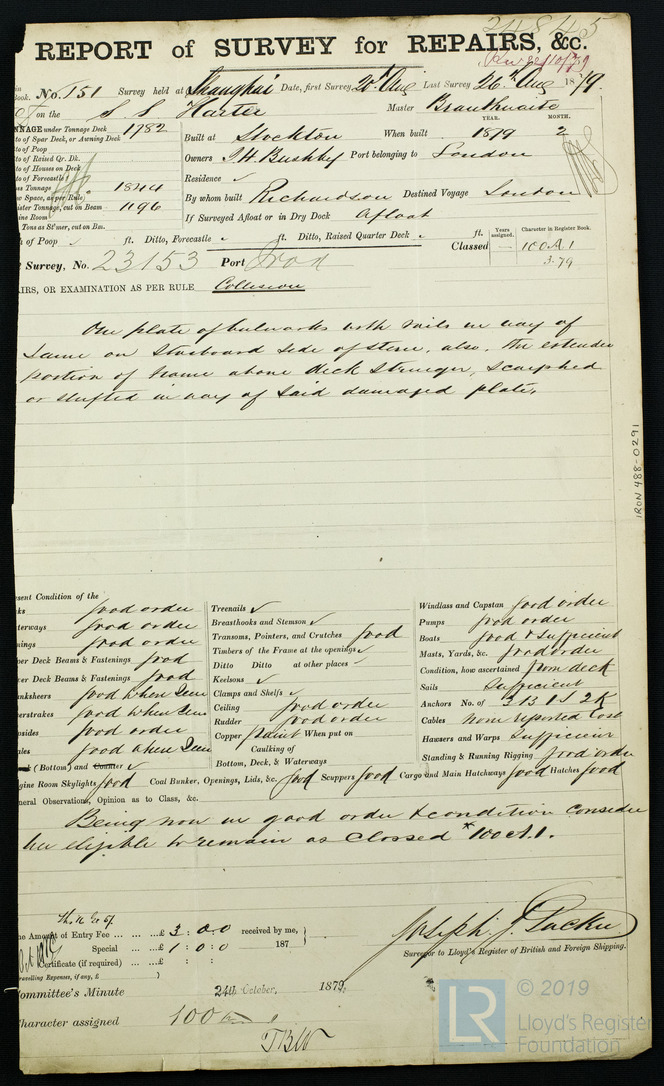 24845
REPORT of SURVEY for REPAIRS, &c.
in Book. No. 151 Survey held at Shanghai Date, first Survey 20th Aug Last Survey 26th Aug 1879
on the S S Harter Master Branthwaite
TONNAGE under Tonnage Deck 1782
to of Spar Deck, or Awning Deck
to of Poop
to of Raised Qr. Dk.
to of Houses on Deck
to of Forecastle
ss Tonnage 1844
w Space, as per Rule
ister Tonnage, cut on Beam 1196
ine Room
Tons as St'mer, cut on Bm.
YEAR. MONTH.
Built at Stockton When built 1879 2
Owners J H Bushby Port belonging to London
Residence ✓
By whom built Richardson Destined Voyage London
If Surveyed Afloat or in Dry Dock Afloat
h of Poop ft. Ditto, Forecastle ft. Ditto, Raised Quarter Deck ft.
Classed Years assigned. Character in Register Book.
100 A 1
3.79
t Survey, No. 23153 Port Iron
AIRS, OR EXAMINATION AS PER RULE Collision
One plate of bulwarks with rails in way of
same on starboard side of stern, also, the extended
portion of frame above deck stringer, scarphed
or shifted in way of said damaged plate,
IRON 488-0291
esent Condition of the
ks good order
terways good order
nings good order
per Deck Beams & Fastenings good
er Deck Beams & Fastenings good
nksheers good when seen
erstrakes good when seen
psides good order
ales good when seen
(Bottom) and Counter ✓
Treenails ✓
Breasthooks and Stemson ✓
Transoms, Pointers, and Crutches good
Timbers of the Frame at the openings ✓
Ditto Ditto at other places ✓
Keelsons ✓
Clamps and Shelfs ✓
Ceiling good order
Rudder good order
Copper paint When put on
Caulking of
Bottom, Deck, & Waterways
Windlass and Capstan good order
Pumps good order
Boats good & sufficient
Masts, Yards, &c. good order
Condition, how ascertained from deck
Sails Sufficient
Anchors No. of 3 B 1 S 2 K
Cables none reported lost
Hawsers and Warps Sufficient
Standing & Running Rigging good order
gine Room Skylights good Coal Bunker, Openings, Lids, &c. good Scuppers good Cargo and Main Hatchways good Hatches good
neral Observations, Opinion as to Class, &c.
Being now in good order & condition consider
her eligible to remain as Classed * 100 A.1.
he Amount of Entry Fee ... ... £ 3 : 0 : 0 received by me,
Special ... ... £ 1 : 0 : 0 187
Certificate (if required) ... £ : :
ravelling Expenses, if any, £ )
Joseph J Tucker
Surveyor to Lloyd's Register of British and Foreign Shipping.
Committee's Minute 24th October, 1879.
Character assigned 100 A 1
TBW
LR © 2019
Lloyd's Register
Foundation